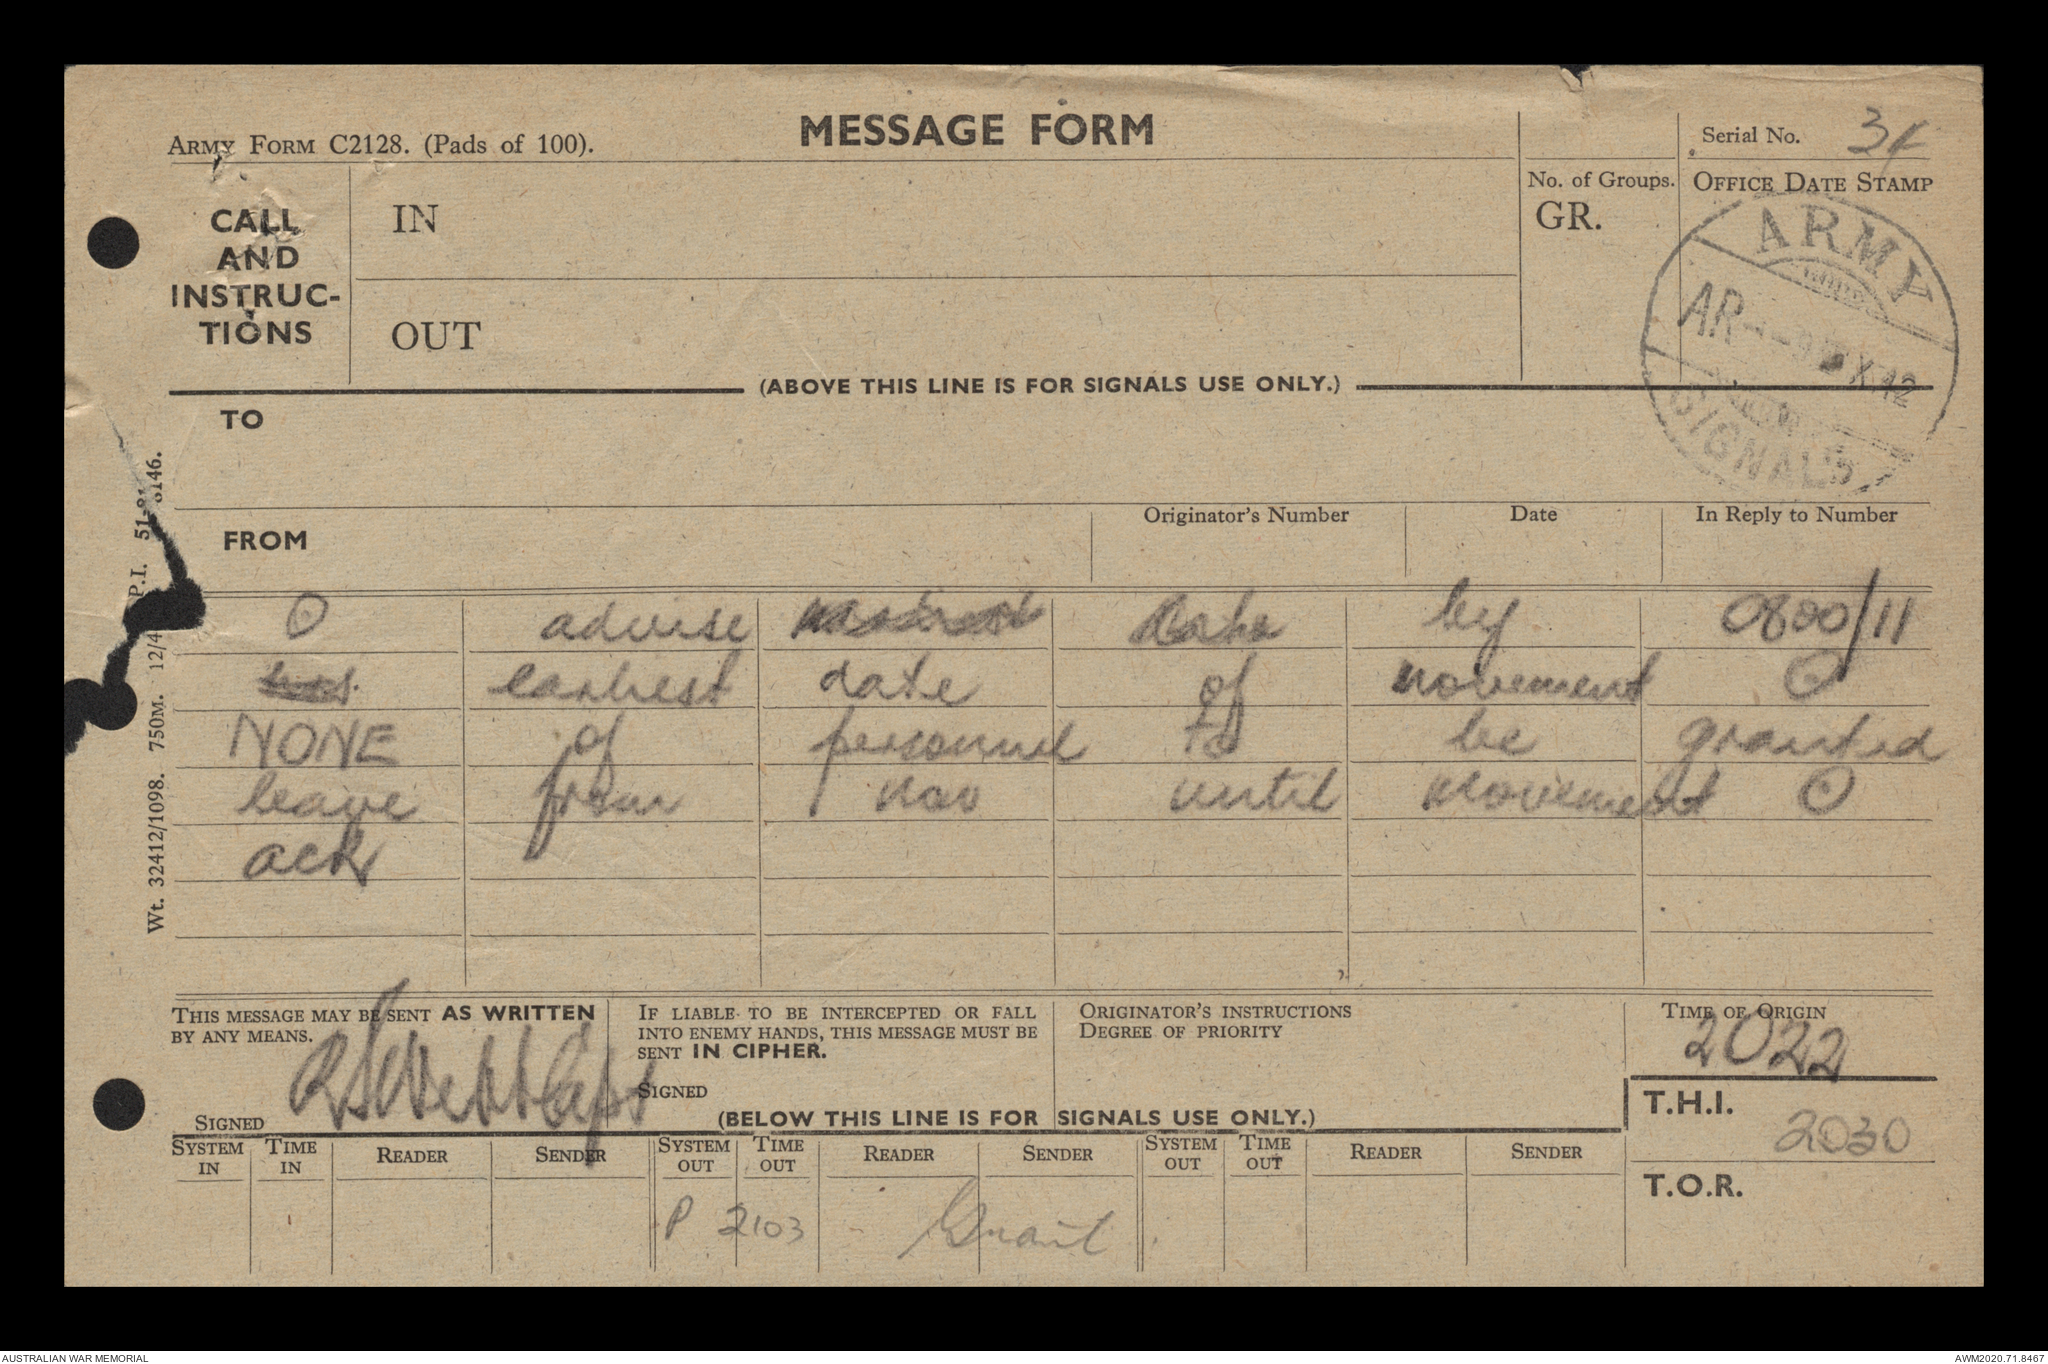 MESSAGE FORM
ARMY FORM C2128. (Pads of 100).
Serial No. 34
CALL AND INSTRUC-TIONS
IN
No. of Groups.
GR.
OFFICE DATE STAMP
ARMY
SIGNALS
OUT
(ABOVE THIS LINE IS FOR SIGNALS USE ONLY.)
TO
FROM
Originator's Number Date In Reply to Number
⊙ advise by 0800/11
earliest date of movement ⊙
NONE of personnel to be granted
leave from now until movement ⊙
ack
Wt. 32412/1098. 750M. 12/4 P.I.
THIS MESSAGE MAY BE SENT AS WRITTEN
BY ANY MEANS.
SIGNED
IF LIABLE TO BE INTERCEPTED OR FALL
INTO ENEMY HANDS, THIS MESSAGE MUST BE
SENT IN CIPHER.
SIGNED
ORIGINATOR'S INSTRUCTIONS
DEGREE OF PRIORITY
TIME OF ORIGIN
2022
T.H.I.
2030
T.O.R.
(BELOW THIS LINE IS FOR SIGNALS USE ONLY.)
SYSTEM IN TIME IN READER SENDER SYSTEM OUT TIME OUT READER SENDER SYSTEM OUT TIME OUT READER SENDER
P 2103 Grant
AUSTRALIAN WAR MEMORIAL
AWM2020.71.8467